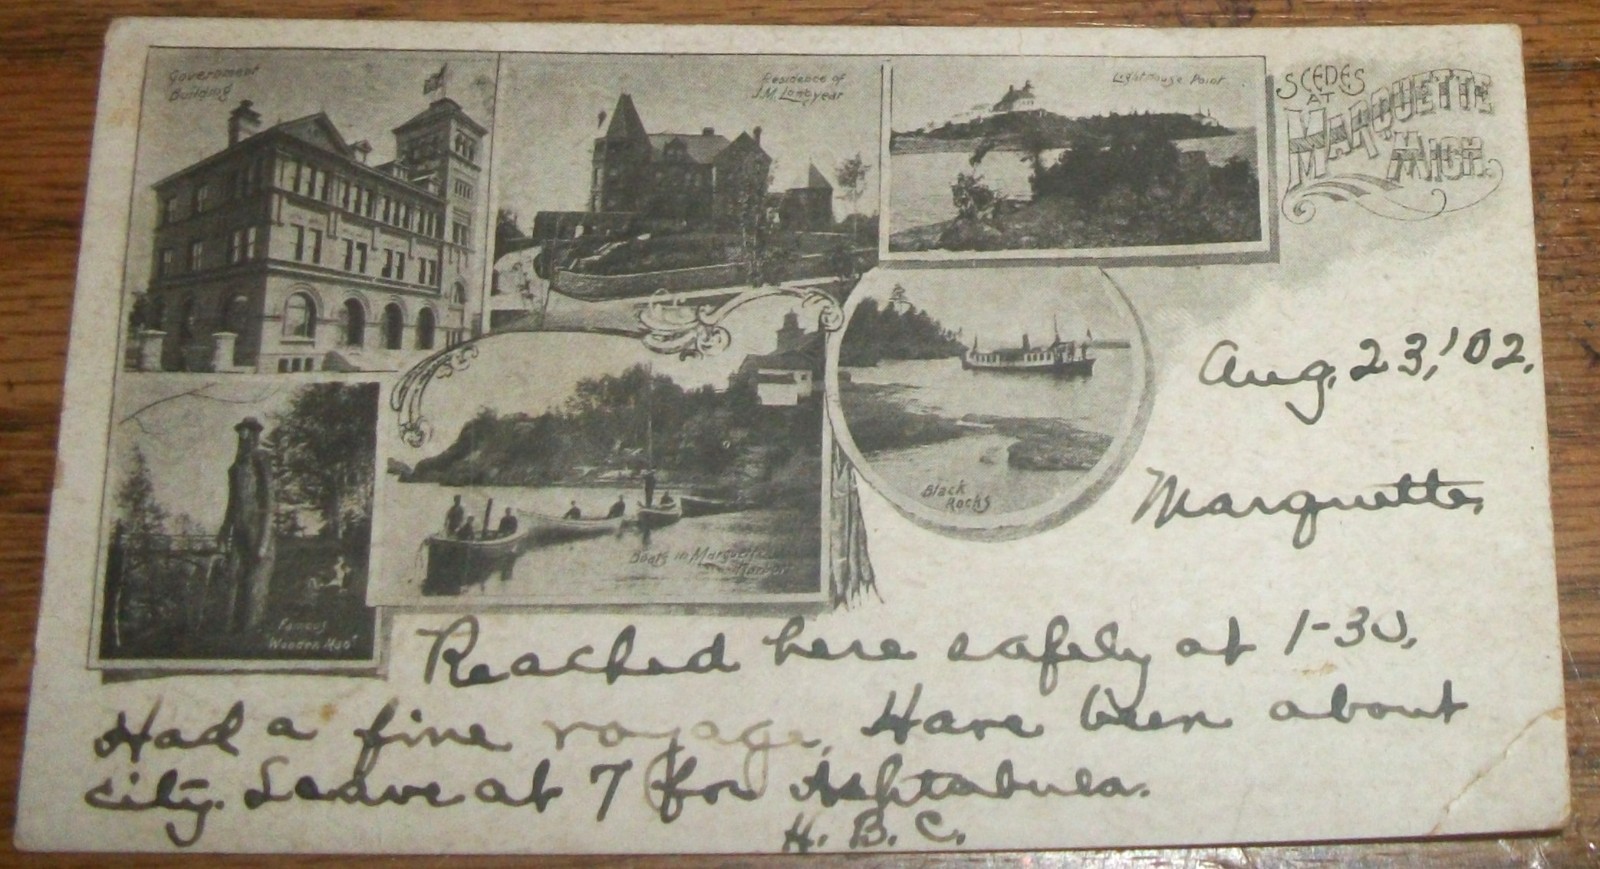 Government
Building
Residence of
J.M. Longyear
Lighthouse Point
SCENES
AT
MARQUETTE
MICH.
Aug. 23, '02.
Black
Rocks
Marquette,
Boats in Marquette
Harbor
Famous
"Wooden Man"
Reached here safely at 1-30.
Had a fine voyage. Have been about
city. Leave at 7 for Ashtabula.
H. B. C.